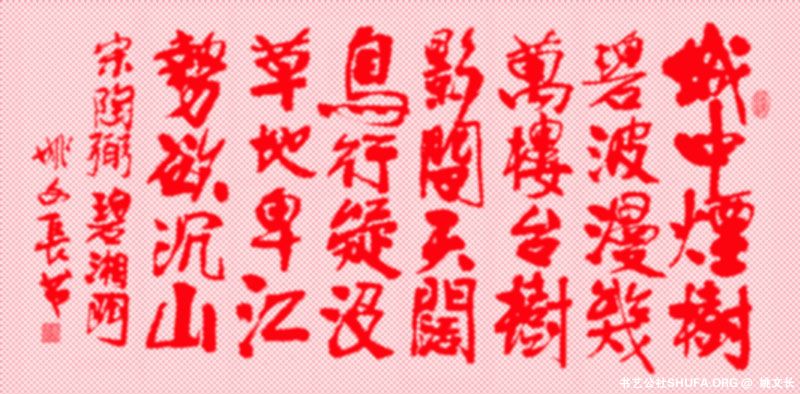 城中煙樹
碧波漫幾
萬樓台樹
影間天闊
鳥行疑沒
草地卑江
勢欲沉山
宋陶弼碧湘門
姚文長書
书艺公社SHUFA.ORG @ 姚文长